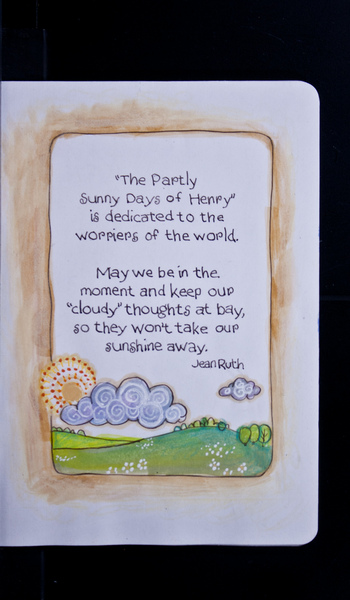 "The Partly
Sunny Days of Henry"
is dedicated to the
worriers of the world.
May we be in the
moment and keep our
"cloudy" thoughts at bay,
so they won't take our
sunshine away.
Jean Ruth